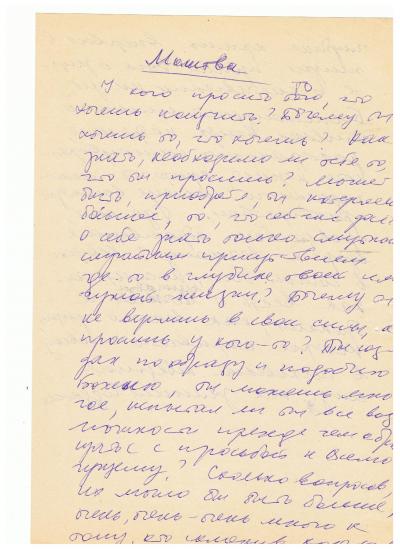 Молитва
У кого просить того, что
хочешь получить? Почему ты
хочешь то, что хочешь? Как
знать, необходимо ли тебе то,
что ты просишь? Может
быть, приобретя, ты потеряешь
большее, то, что сейчас дает
о себе знать только смутным
случайным присутствием
где-то в глубине твоей
жизни? Почему ты
не веришь в свои силы, а
просишь у кого-то? Ты соз-
дан по образу и подобию
Божьему, ты можешь мно-
гое, испытал ли ты все воз
можности прежде чем обра
щаться с просьбой к Всемо
гущему? Сколько вопросов,
их могло бы быть больше,
очень, очень-очень много к
тому, кто